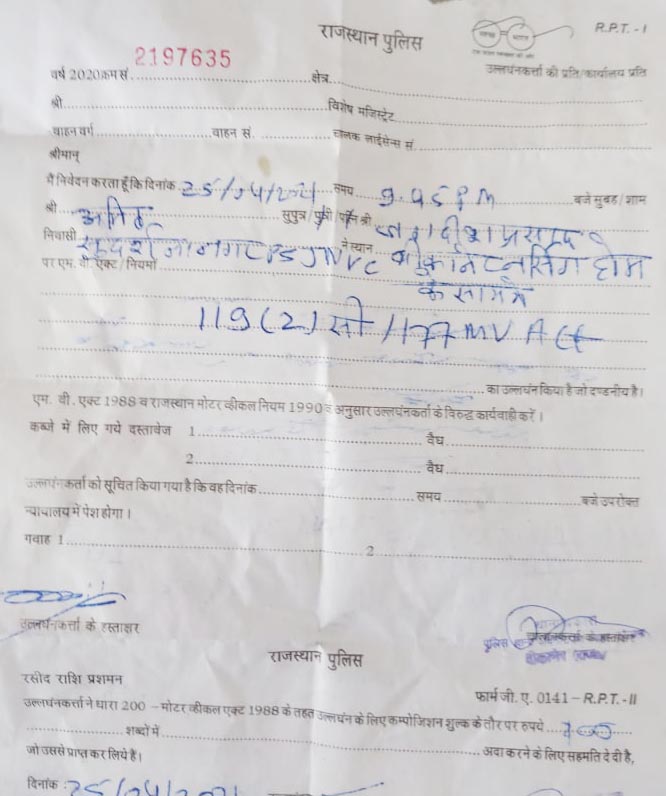 राजस्थान पुलिस
R.P.T. - I
उल्लघंनकर्त्ता की प्रति/कार्यालय प्रति
2197635
वर्ष 2020क्रम सं. क्षेत्र
श्री विशेष मजिस्ट्रेट
वाहन वर्ग वाहन सं. चालक लाईसेन्स सं.
श्रीमान्
मैं निवेदन करता हूँ कि दिनांक 25/04/2021 समय 9.45 PM बजे सुबह/शाम
श्री सुपुत्र/पुत्री/पत्नि श्री प्रसाद
निवासी ने स्थान
पर एम. वी. एक्ट/नियमों
के सामने
119(2) सी/177 MV Act
का उल्लंघन किया है जो दण्डनीय है।
एम. वी. एक्ट 1988 व राजस्थान मोटर व्हीकल नियम 1990 के अनुसार उल्लघंनकर्ता के विरुद्ध कार्यवाही करें।
कब्जे में लिए गये दस्तावेज 1 वैध
2 वैध
उल्लघंनकर्ता को सूचित किया गया है कि वह दिनांक समय बजे उपरोक्त
न्यायालय में पेश होगा।
गवाह 1 2
उल्लघंनकर्त्ता के हस्ताक्षर
पुलिस
राजस्थान पुलिस
रसीद राशि प्रशमन
फार्म जी. ए. 0141 – R.P.T. -II
उल्लघंनकर्त्ता ने धारा 200 – मोटर व्हीकल एक्ट 1988 के तहत उल्लघंन के लिए कम्पोजिशन शुल्क के तौर पर रुपये
शब्दों में अदा करने के लिए सहमति दे दी है,
जो उससे प्राप्त कर लिये हैं।
दिनांक : 25/04/2021